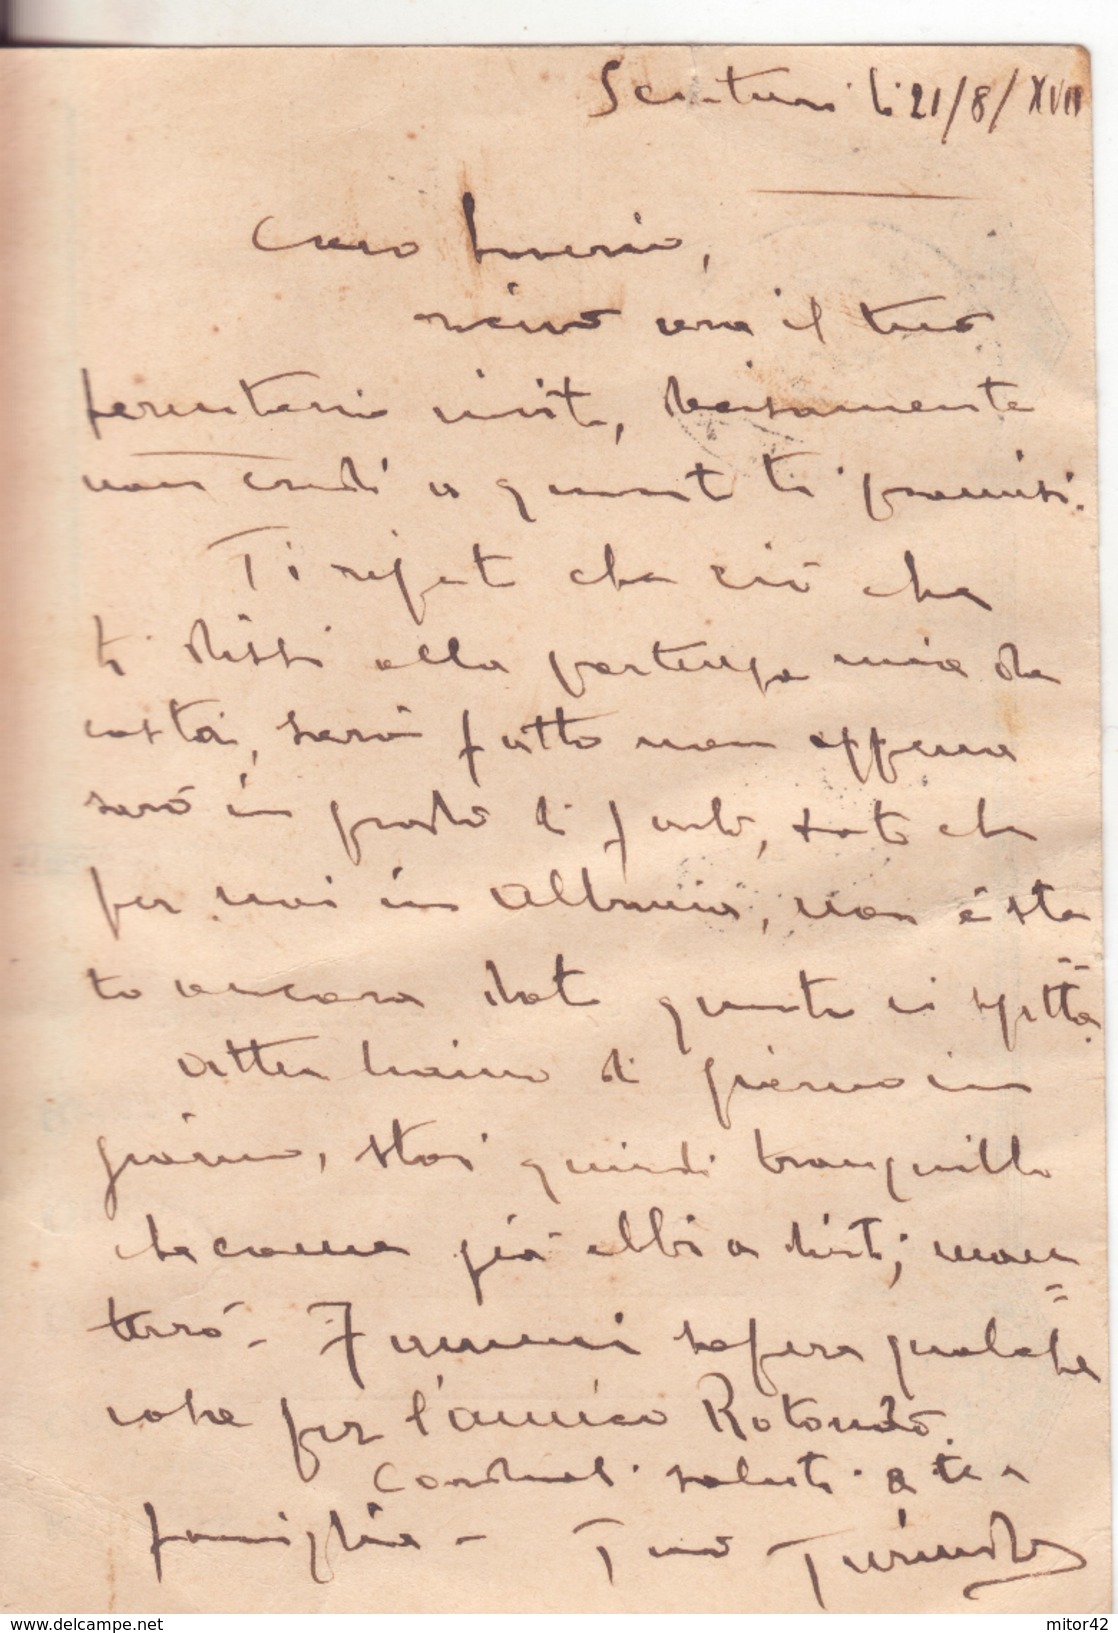 Scutari li 21/8/XVII
Caro Saverio,
ricevo ora il tuo
perentorio invito, decisamente
non credi a quanto ti promisi.
Ti ripeto che ciò che
ti dissi alla partenza mia da
costà, sarà fatto non appena
sarò in grado di farlo, dato che
per noi in Albania, non è sta
to ancora dato quanto ci spetta.
Attendiamo di giorno in
giorno, stai quindi tranquillo
che come già ebbi a dirti; man=
terrò - Fammi sapere qualche
cosa per l'amico Rotondo.
Cordiali saluti a te e
famiglia - Tuo
www.delcampe.net
mitor42